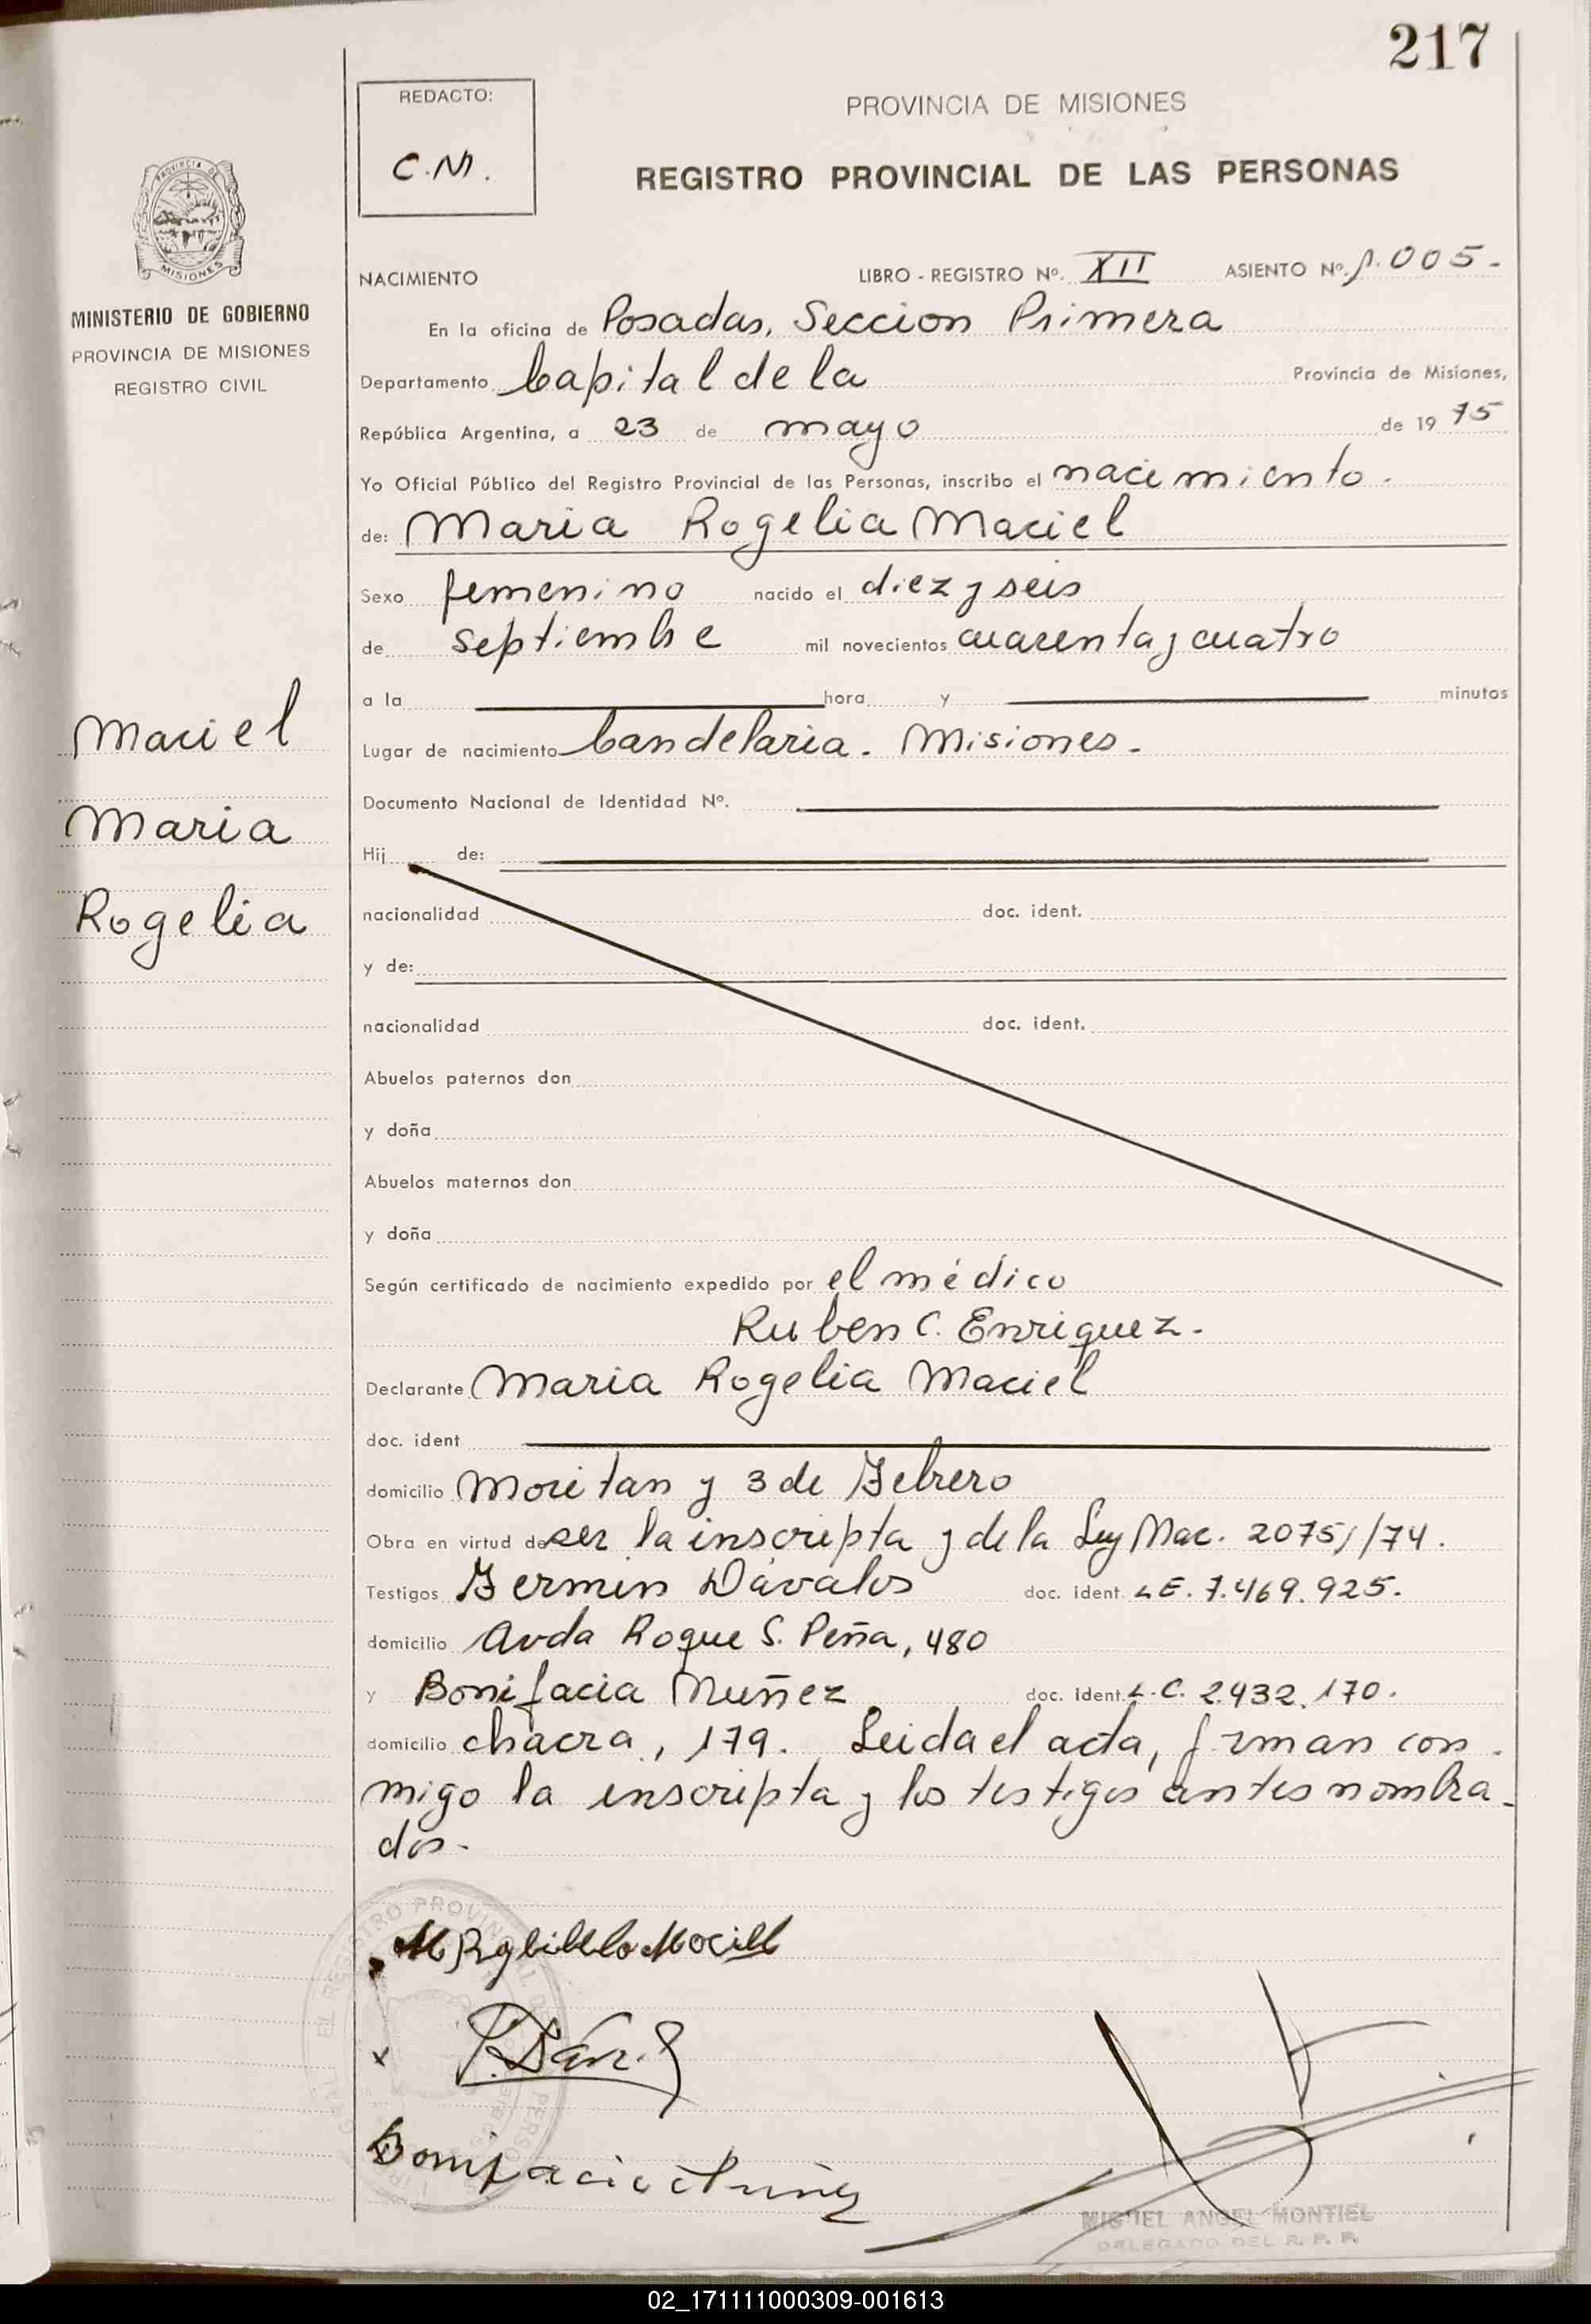 217
REDACTO:
C.N.
PROVINCIA DE MISIONES
REGISTRO PROVINCIAL DE LAS PERSONAS
PROVINCIA DE
MISIONES
MINISTERIO DE GOBIERNO
PROVINCIA DE MISIONES
REGISTRO CIVIL
Maciel
Maria
Rogelia
NACIMIENTO LIBRO - REGISTRO Nº. XII ASIENTO Nº. 1.005-
En la oficina de Posadas, Seccion Primera
Departamento Capital de la Provincia de Misiones,
República Argentina, a 23 de mayo de 19 75
Yo Oficial Público del Registro Provincial de las Personas, inscribo el nacimiento.
de: Maria Rogelia Maciel
Sexo femenino nacido el diez y seis
de septiembre mil novecientos cuarenta y cuatro
a la hora y minutos
Lugar de nacimiento Candelaria. Misiones.
Documento Nacional de Identidad Nº.
Hij de:
nacionalidad doc. ident.
y de:
nacionalidad doc. ident.
Abuelos paternos don
y doña
Abuelos maternos don
y doña
Según certificado de nacimiento expedido por el médico
Ruben C. Enriquez.
Declarante Maria Rogelia Maciel
doc. ident
domicilio Moritan y 3 de Febrero
Obra en virtud de ser la inscripta y de la Ley Nac. 20751/74.
Testigos Fermin Dávalos doc. ident. L E. 7.469.925.
domicilio Avda Roque S. Peña, 480
y Bonifacia Nuñez doc. ident. L.C. 2.432.170.
domicilio chacra, 179. Leida el acta, firman con
migo la inscripta y los testigos antes nombra-
dos.
Bonifacia Nuñez
MIGUEL ANGEL MONTIEL
DELEGADO DEL R. P. P.
02_171111000309-001613